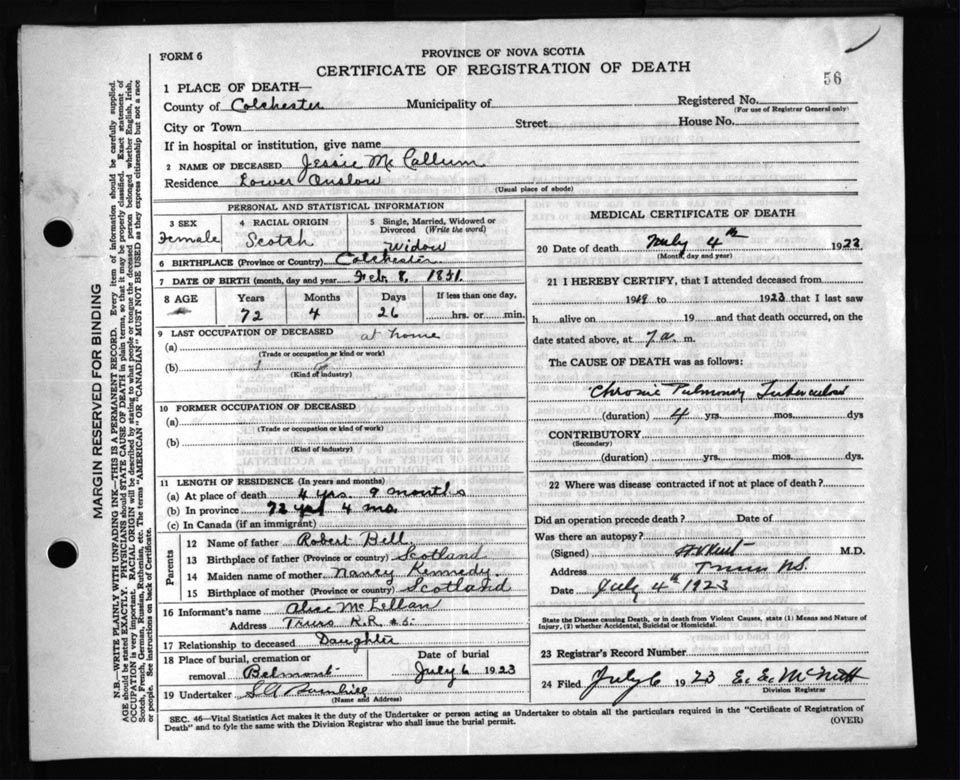 FORM 6
PROVINCE OF NOVA SCOTIA
CERTIFICATE OF REGISTRATION OF DEATH
56
1 PLACE OF DEATH—
County of Colchester Municipality of Registered No.
(For use of Registrar General only)
City or Town Street House No.
If in hospital or institution, give name
2 NAME OF DECEASED Jessie McCallum
Residence Lower Onslow
(Usual place of abode)
PERSONAL AND STATISTICAL INFORMATION
3 SEX 4 RACIAL ORIGIN 5 Single, Married, Widowed or Divorced (Write the word)
Female Scotch Widow
6 BIRTHPLACE (Province or Country) Colchester
7 DATE OF BIRTH (month, day and year) Feb. 8, 1851.
8 AGE Years Months Days If less than one day,
72 4 26 hrs. or min.
9 LAST OCCUPATION OF DECEASED at home
(a)
(Trade or occupation or kind or work)
(b)
(Kind of industry)
10 FORMER OCCUPATION OF DECEASED
(a)
(Trade or occupation or kind or work)
(b)
(Kind of industry)
11 LENGTH OF RESIDENCE (In years and months)
(a) At place of death 4 yrs. 9 months
(b) In province 72 yrs 4 mo.
(c) In Canada (if an immigrant)
Parents
12 Name of father Robert Bell
13 Birthplace of father (Province or country) Scotland
14 Maiden name of mother Nancy Kennedy.
15 Birthplace of mother (Province or country) Scotland
16 Informant's name Alice McLellan
Address Truro R.R. #5.
17 Relationship to deceased Daughter
18 Place of burial, cremation or removal Belmont
Date of burial July 6 1923
19 Undertaker
(Name and Address)
MEDICAL CERTIFICATE OF DEATH
20 Date of death July 4th 1923
(Month, day and year)
21 I HEREBY CERTIFY, that I attended deceased from
1919 to 1923 that I last saw
h alive on 19 and that death occurred, on the
date stated above, at 7 a. m.
The CAUSE OF DEATH was as follows:
Chronic Pulmonary Tuberculosis
(duration) 4 yrs. mos. dys
CONTRIBUTORY
(Secondary)
(duration) yrs. mos. dys
22 Where was disease contracted if not at place of death?
Did an operation precede death? Date of
Was there an autopsy?
(Signed) M.D.
Address Truro NS.
Date July 4th 1923
State the Disease causing Death, or in death from Violent Causes, state (1) Means and Nature of
Injury, (2) whether Accidental, Suicidal or Homicidal.
23 Registrar's Record Number
24 Filed July 6 1923 E. E. McNutt
Division Registrar
SEC. 46—Vital Statistics Act makes it the duty of the Undertaker or person acting as Undertaker to obtain all the particulars required in the "Certificate of Registration of
Death" and to fyle the same with the Division Registrar who shall issue the burial permit.
(OVER)
MARGIN RESERVED FOR BINDING
N.B.—WRITE PLAINLY WITH UNFADING INK—THIS IS A PERMANENT RECORD. Every item of information should be carefully supplied.
AGE should be stated EXACTLY. PHYSICIANS should STATE CAUSE OF DEATH in plain terms, so that it may be properly classified. Exact statement of
OCCUPATION is very important. RACIAL ORIGIN will be described by stating to what people or tongue the deceased person belonged whether English, Irish,
Scotch, French, German, Russian, Ruthenian, etc. The terms "AMERICAN" OR "CANADIAN" MUST NOT BE USED as they express citizenship but not a race
or people. See instructions on back of Certificate.